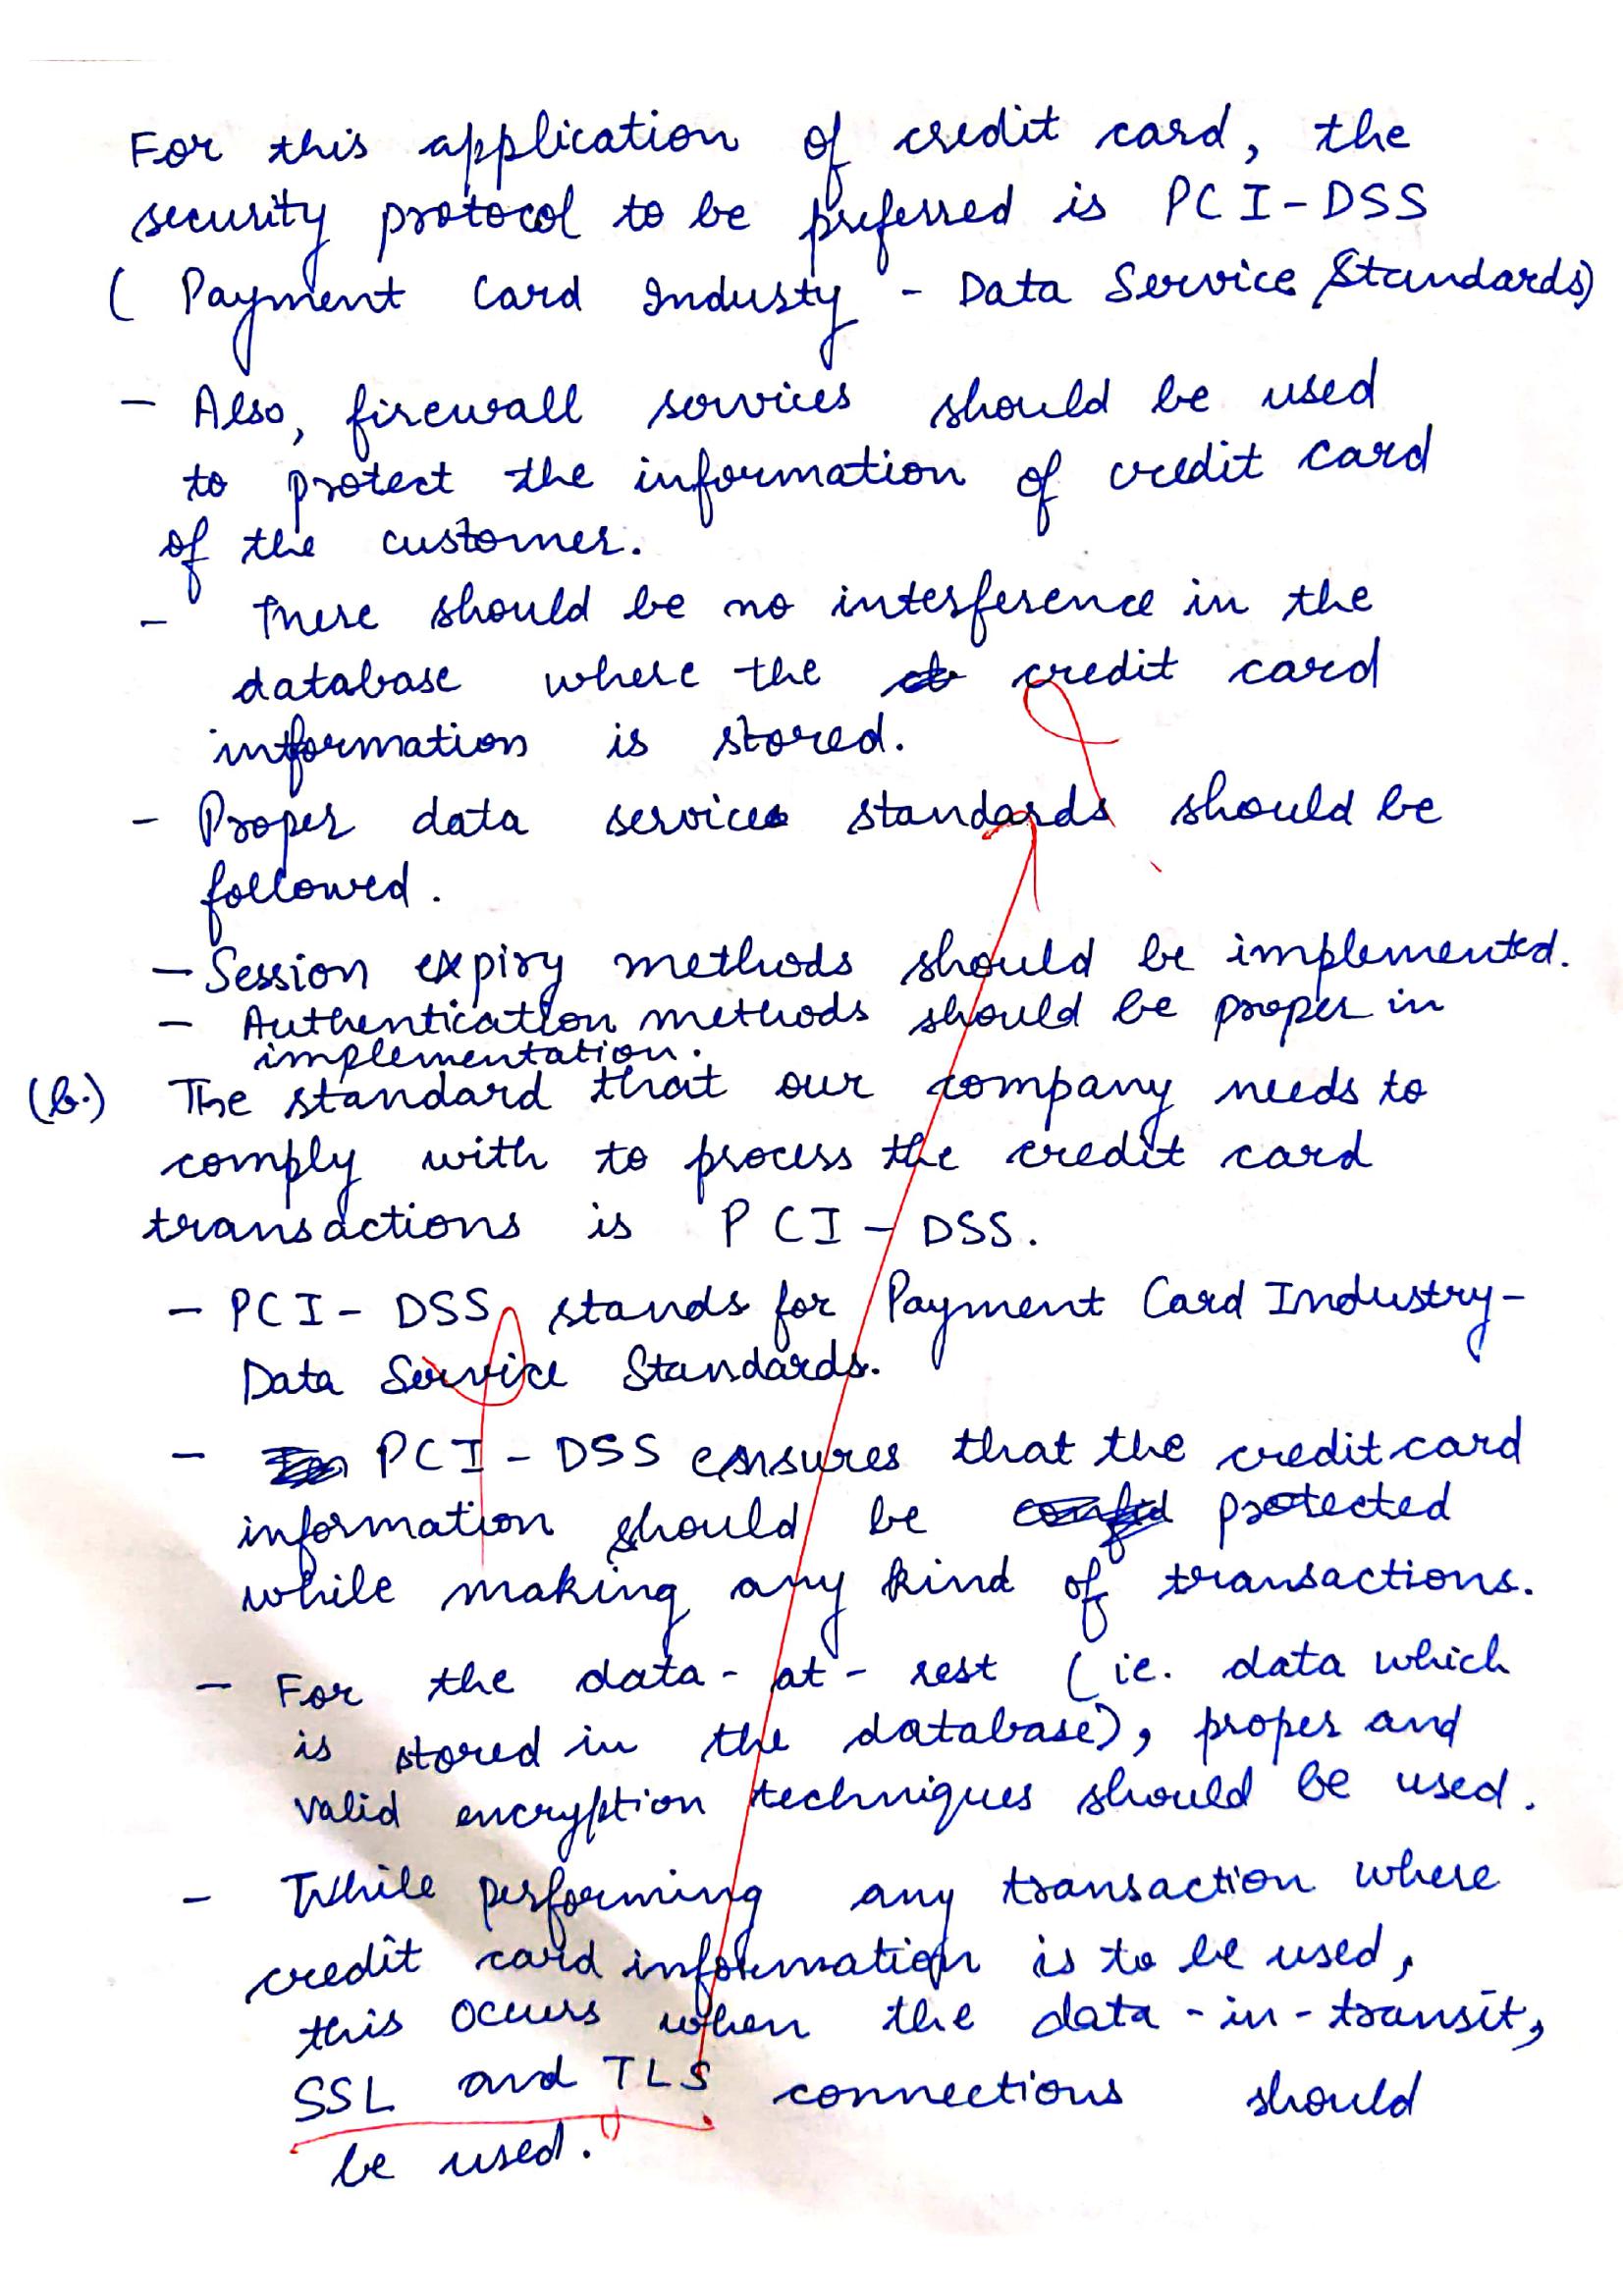 For this application of credit card, the
security protocol to be preferred is PCI-DSS
( Payment Card Industy - Data Service Standards)
- Also, firewall services should be used
to protect the information of credit card
of the customer.
- There should be no interference in the
database where the credit card
information is stored.
- Proper data service standards should be
followed.
- Session expiry methods should be implemented.
- Authentication methods should be proper in
implementation.
(b.) The standard that our company needs to
comply with to process the credit card
transactions is PCI-DSS.
- PCI-DSS stands for Payment Card Industry-
Data Service Standards.
- PCI-DSS ensures that the credit card
information should be protected
while making any kind of transactions.
- For the data-at-rest (ie. data which
is stored in the database), proper and
valid encryption techniques should be used.
- While performing any transaction where
credit card information is to be used,
this occurs when the data-in-transit,
SSL and TLS connections should
be used.